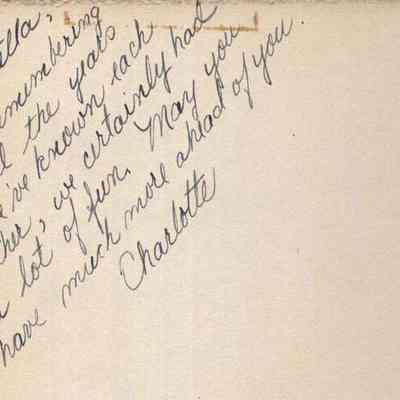 illa,
emembering
the years
e've known each
her, we certainly had
a lot of fun. May you
have much more ahead of you.
Charlotte